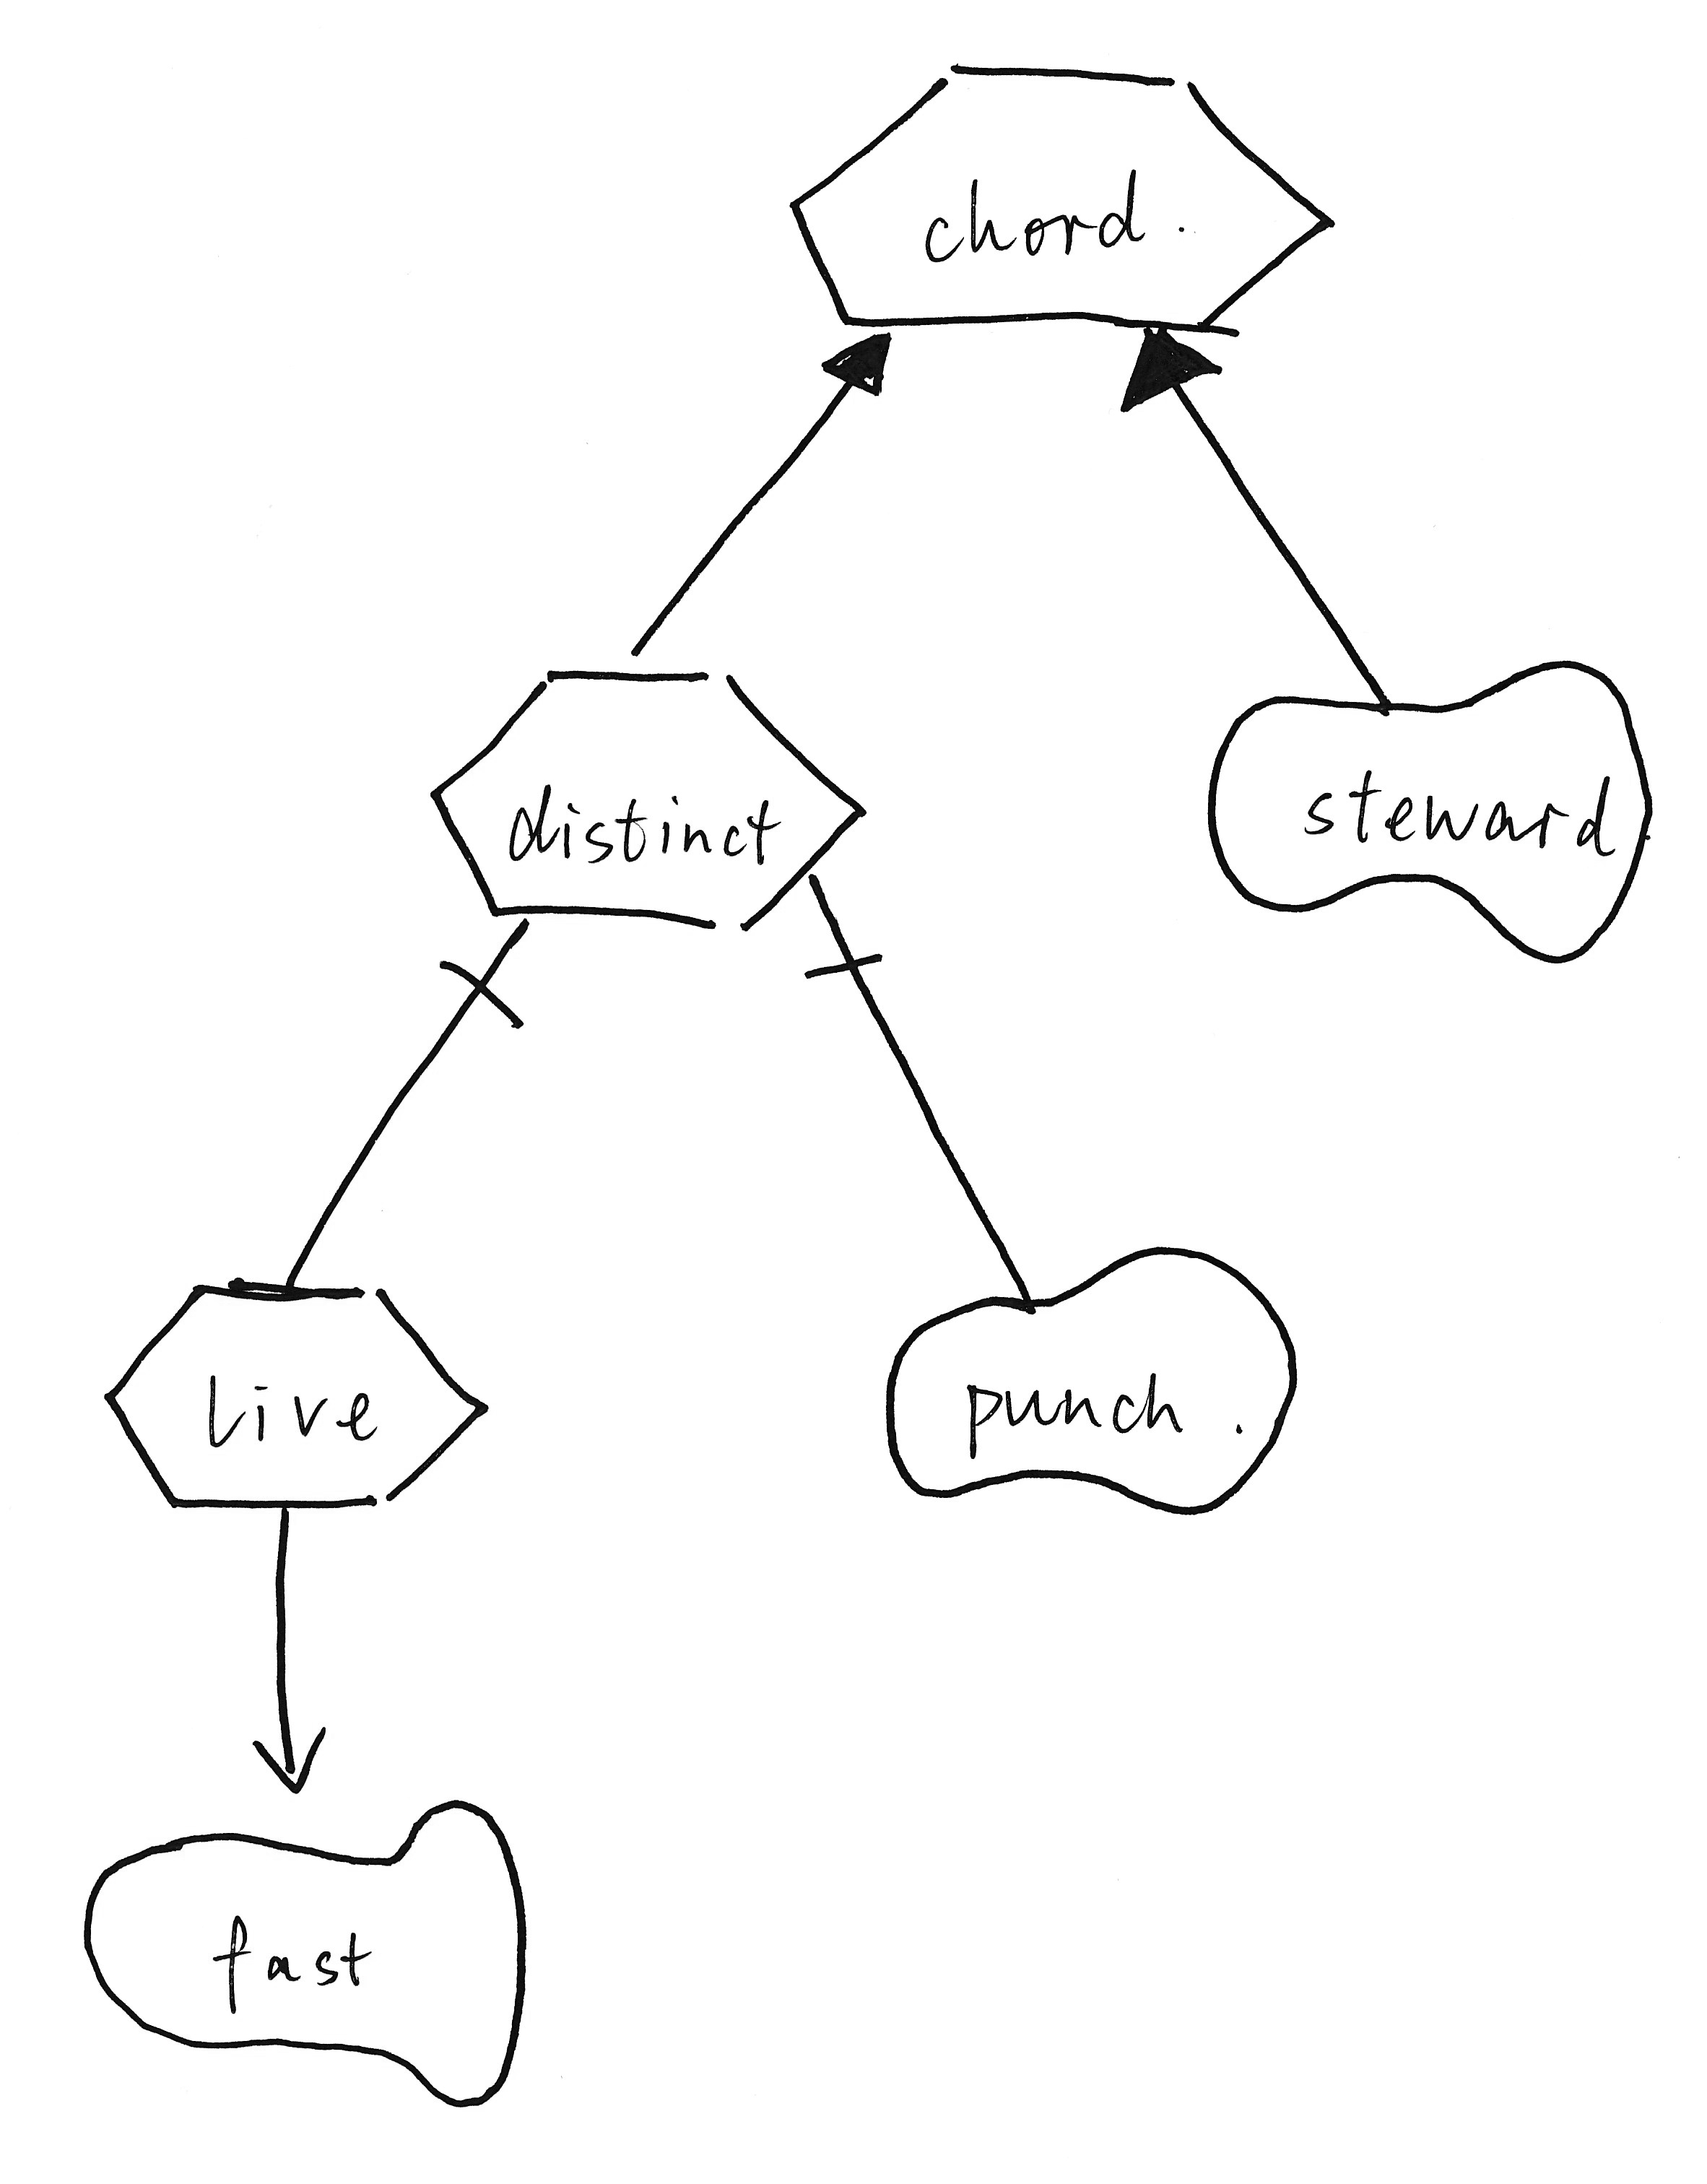 chord.
distinct
steward
live
punch.
fast